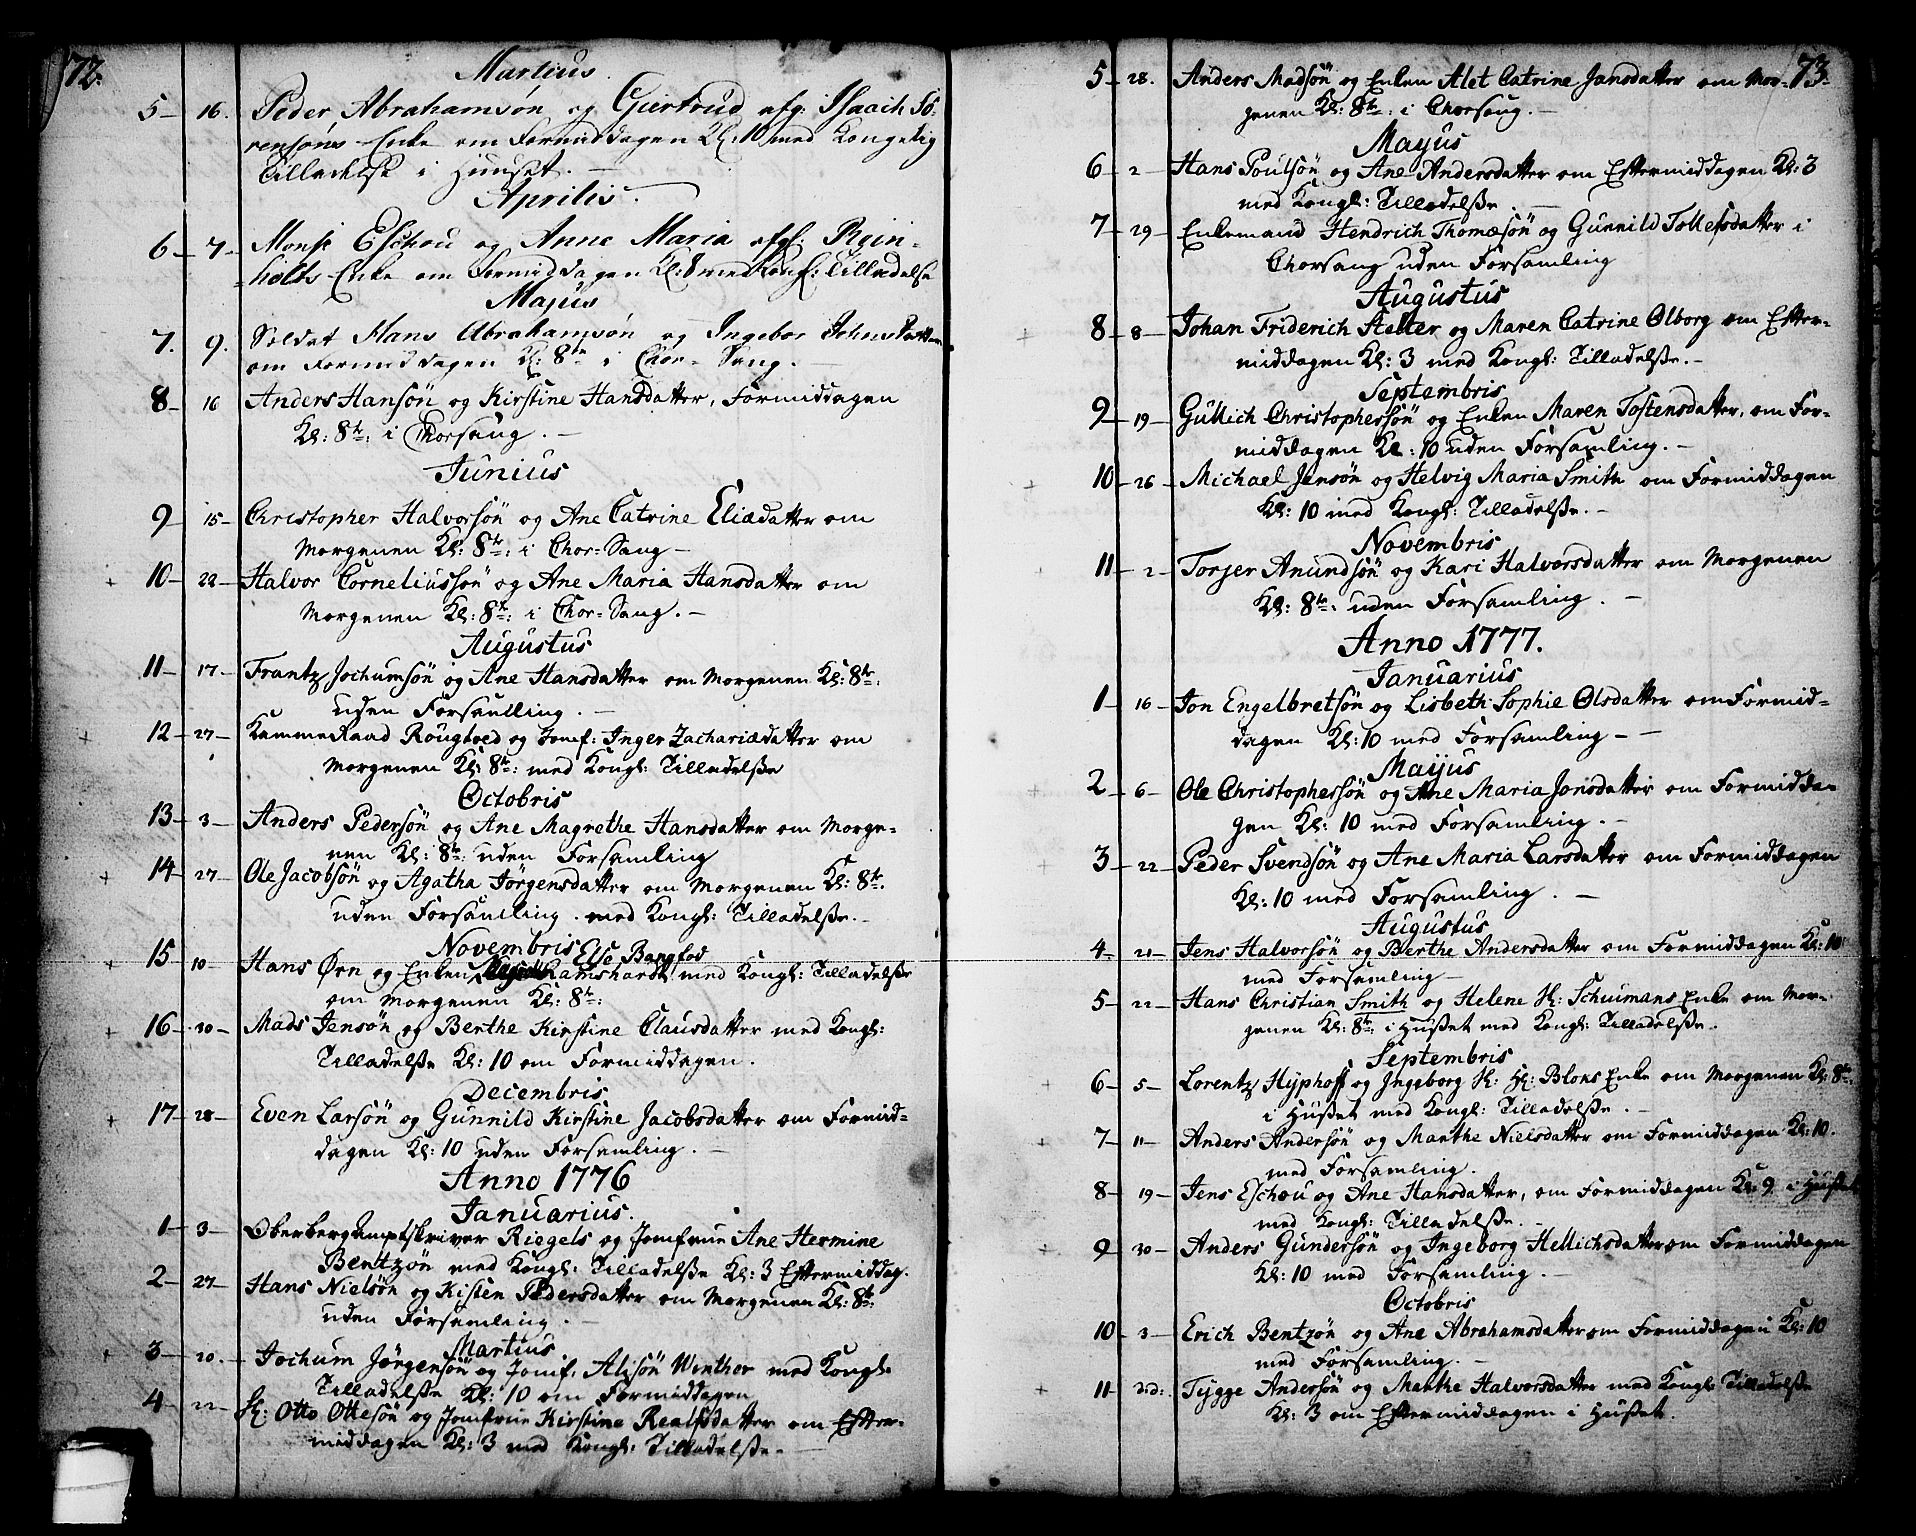 72.
Martius.
5 – 16. Peder Abrahamsön og Giertrud afg. Isaach Sö-
rensöns Enke om Formiddagen Kl: 10 med Kongelig
Tilladelse i Huuset. –
Aprilis.
6 – 7 – Monsr Eschou og Anne Maria afgl. Rein-
holts Enke om Formiddagen Kl: 8 med Kongl: Tilladelse
Majus
7. 9. Soldat Hans Abrahamsön og Ingebor Johns Datter
om Formiddagen Kl: 8te i Chor-Sang. –
8 – 16 Anders Hansön og Kirstine Hansdatter, Formiddagen
Kl: 8te: i Chorsang. –
Junius
9 – 15 – Christopher Halvorsön og Ane Catrine Eliædatter om
Morgenen Kl: 8te: i Chor-Sang –
10 – 22 – Halvor Corneliussön og Ane Maria Hansdatter om
Morgenen Kl: 8te: i Chor-Sang. –
Augustus
11 – 17 – Frantz Jochumsön og Ane Hansdatter om Morgenen Kl: 8te:
uden Forsamling. –
12 – 27 – KammeRaad Rougtved og Jomf: Inger Zachariædatter om
Morgenen Kl: 8te: med Kongl: Tilladelsse
Octobris
13 – 3 – Anders Pedersön og Ane Magrethe Hansdatter om Morge-
nen Kl: 8te: uden Forsamling
14 – 27 – Ole Jacobsön og Agatha Jörgensdatter om Morgenen Kl: 8te.
uden Forsamling. med Kongl: Tilladelsse. –
Novembris
Else Bangfod
15 10 – Hans Ørn og Enken Ramshardt med Kongl: Tilladelsse
om Morgenen Kl: 8te:
16 – 20 – Mads Jensön og Berthe Kirstine Clausdatter med Kongl:
Tilladelsse Kl: 10 om Formiddagen.
Decembris
17 – 28 – Even Larsön og Gunnild Kirstine Jacobsdatter om Formid-
dagen Kl: 10 uden Forsamling. –
Anno 1776
Januarius.
1 – 3 – Oberbergamptskriver Riegels og Jomfrue Ane Hermine
Bentzön med Kongl: Tilladelsse Kl: 3 Eftermiddag.
2 – 27 – Hans Nielsön og Kisten Pedersdatter om Morgenen Kl: 8te:
uden Forsamling. –
Martius
3 – 20. – Jochum Jörgensön og Jomf. Alisön Winther med Kongl:
Tilladelsse Kl: 10 om Formiddagen
4 – 22 – Hr: Otto Ottesön og Jomfrue Kirstine Realfsdatter om Efter-
middagen Kl: 3 med Kongl: Tilladelsse. –
73.
5 – 28. Anders Madsön og Enken Alet Catrine Jansdatter om Mor-
genen Kl: 8te: i Chorsang. –
Mayus
6 – 2 – Hans Poulsön og Ane Andersdatter om Eftermiddagen Kl: 3
med Kongl: Tilladelsse. –
7 – 29 – Enkemand Hendrich Thomæsön og Gunnild Tollefsdatter i
Chorsang uden Forsamling
Augustus
8 – 8 – Johan Friderich Stelter og Maren Catrine Olborg om Efter-
middagen Kl: 3 med Kongl: Tilladelsse. –
Septembris
9 – 19 – Gullich Christopherssön og Enken Maren Tostensdatter, om For-
middagen Kl: 10 uden Forsamling. –
10 – 26 – Michael Jensön og Helvig Maria Smith om Formiddagen
Kl: 10 med Kongl: Tilladelsse. –
Novembris
11 – 2 – Torjer Anundsön og Kari Halvorsdatter om Morgenen
Kl: 8te: uden Forsamling. –
Anno 1777.
Januarius
1 – 16 – Jon Engelbretsön og Lisbeth Sophie Olsdatter om Formid-
dagen Kl: 10 med Forsamling –
Mayus
2 – 6 – Ole Christopherssön og Ane Maria Jonsdatter om Formidda-
gen Kl: 10 med Forsamling. –
3 – 22 – Peder Svendsön og Ane Maria Larsdatter om Formiddagen
Kl: 10 med Forsamling. –
Augustus
4 – 21 – Jens Halvorsön og Berthe Andersdatter om Formiddagen Kl: 10
med Forsamling –
5 – 22 – Hans Christian Smith og Helene Hr: Schuimans Enke om Mor-
genen Kl: 8te: i Husset med Kongl: Tilladelsse.
Septembris
6 – 5 – Lorentz Hyphoff og Ingeborg Hr: Bloks Enke om Morgenen Kl: 8te:
i Husset med Kongl: Tilladelsse. –
7 – 11 – Anders Andersön og Marthe Nielsdatter om Formiddagen Kl: 10.
med Forsamling.
8 – 19 – Jens Eschou og Ane Hansdatter, om Formiddagen Kl: 9 i Husset
med Kongl: Tilladelsse. –
9 – 30 – Anders Gundersön og Ingeborg Hellichsdatter om Formiddagen
Kl: 10 med Forsamling. –
Octobris
10 – 3 – Erich Bentzön og Ane Abrahamsdatter om Formiddagen Kl: 10
med Forsamling. –
11 – Tygge Andersön og Marthe Halvorsdatter med Kongl: Tilladelsse
Kl: 3 om Eftermiddagen i Husset.